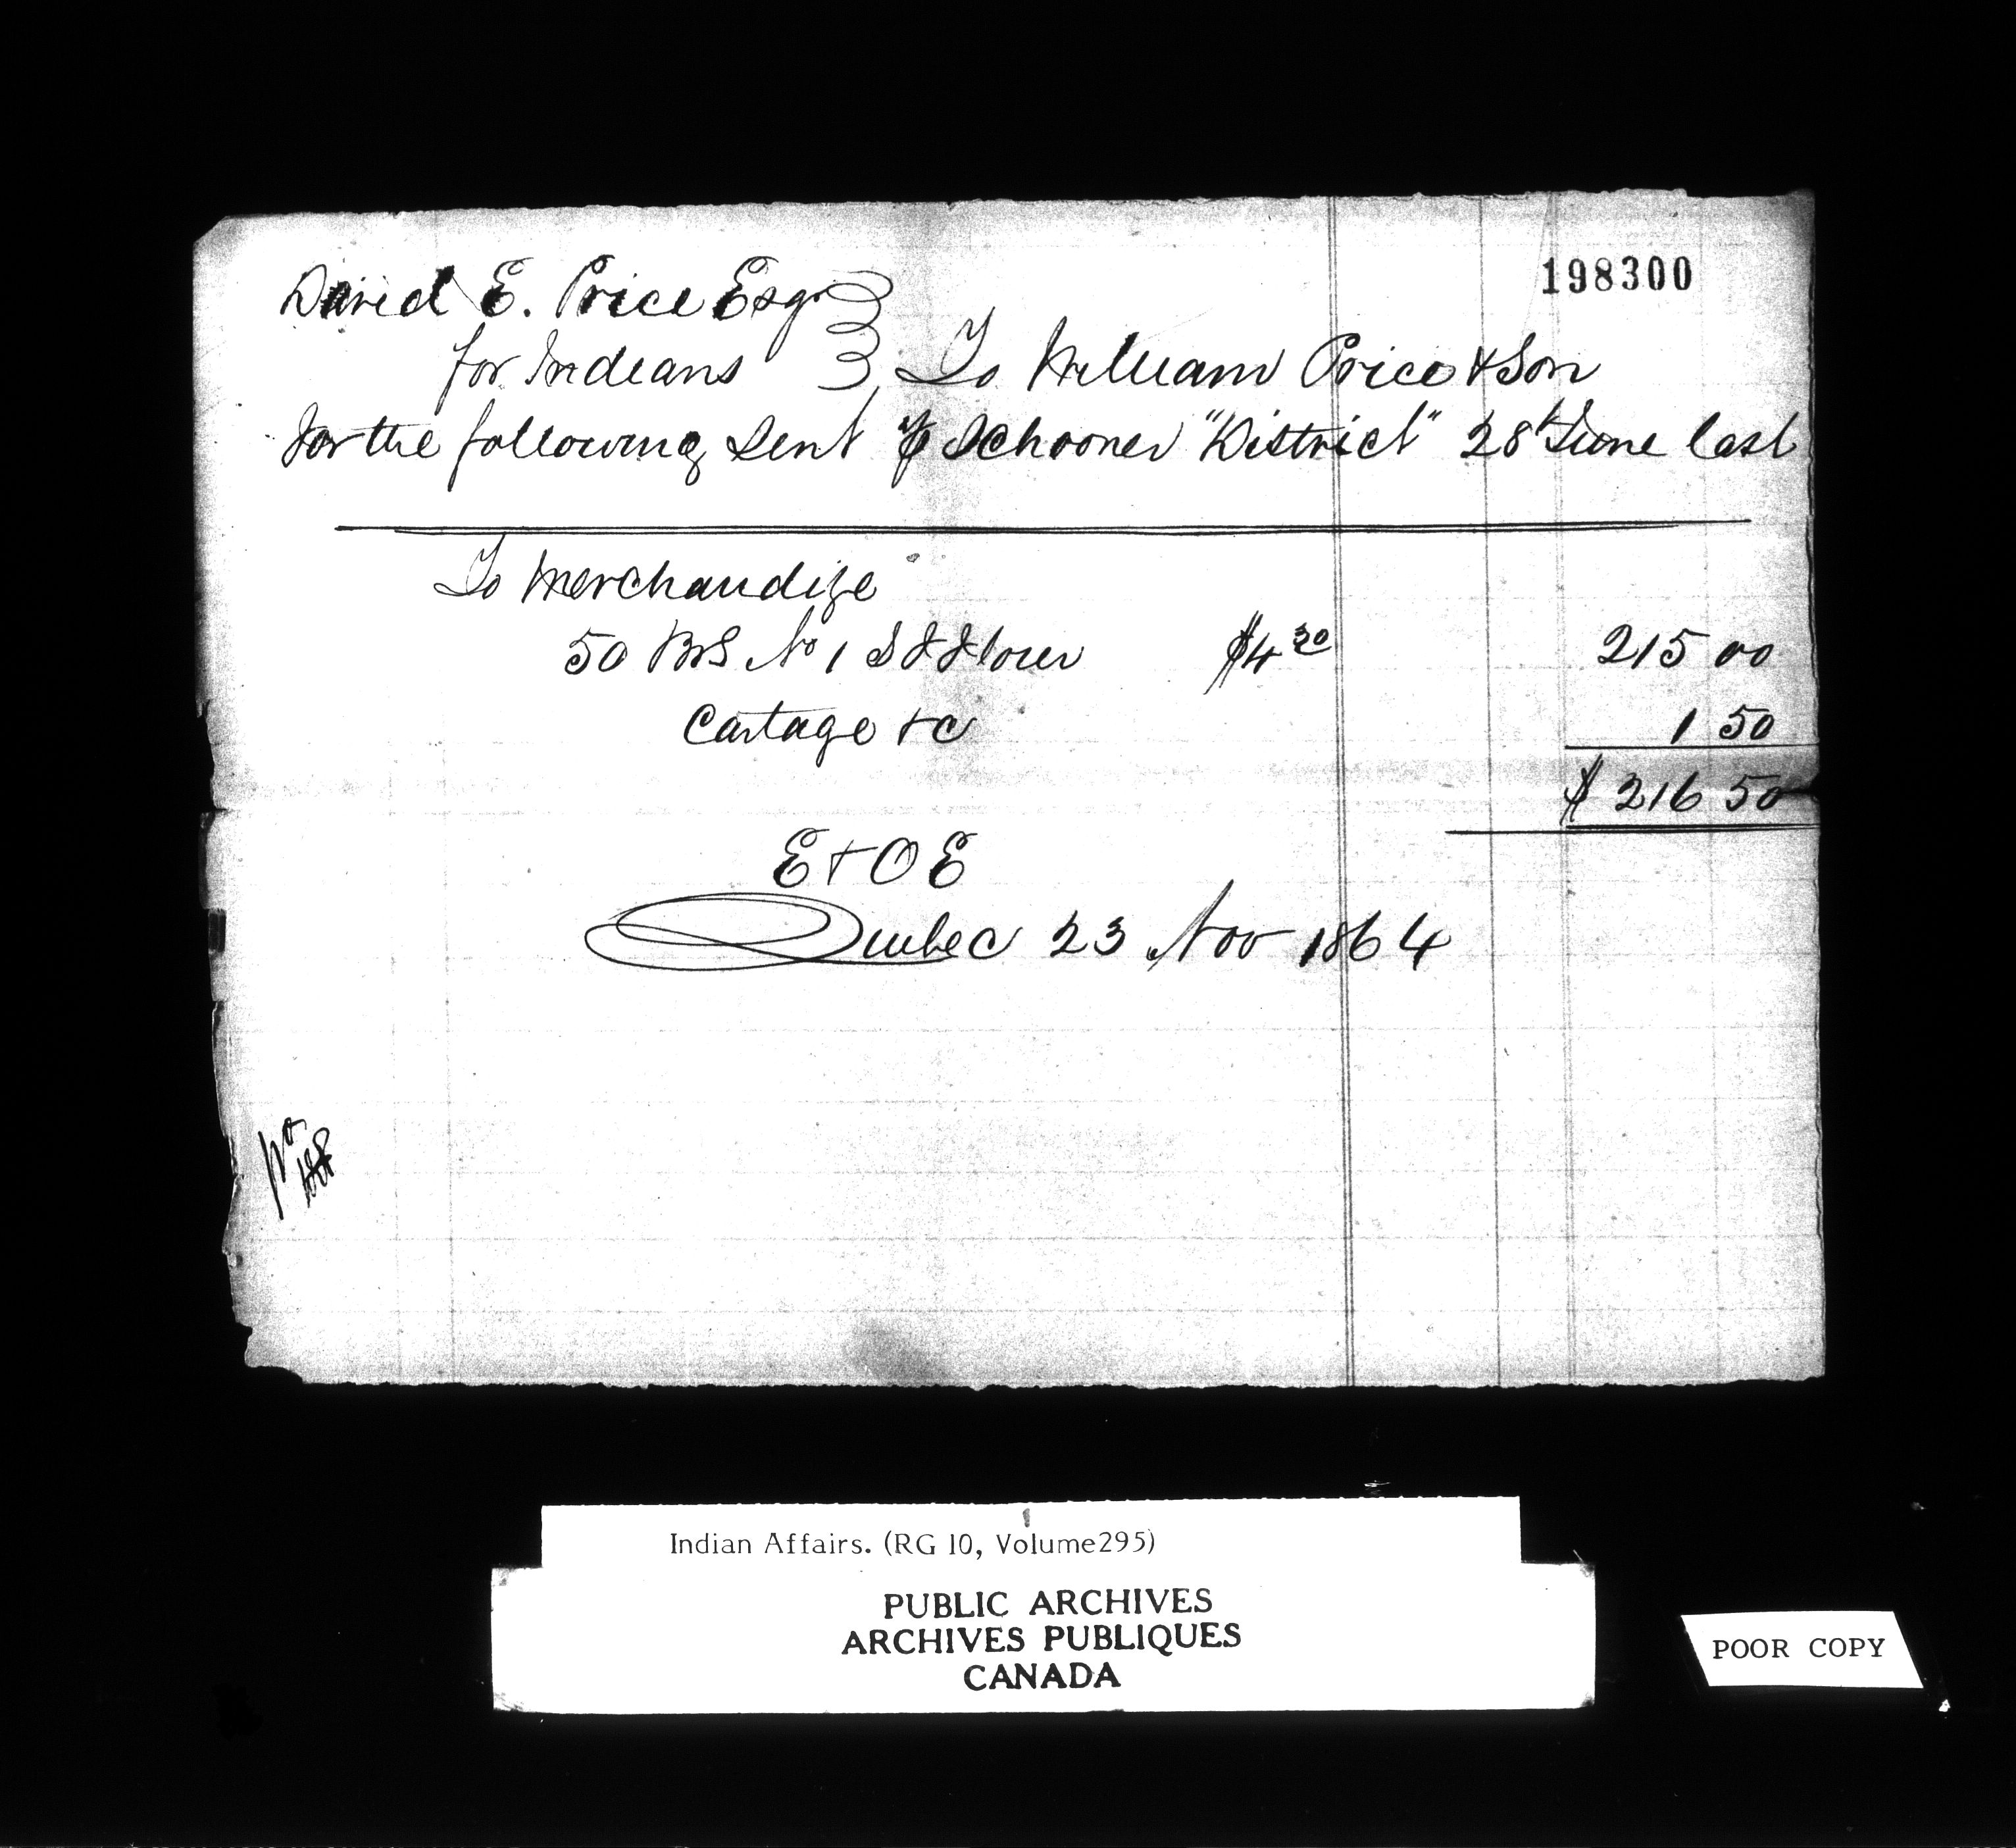 198300
David E. Price Esqr
for Indians } To William Price & Son
for the following Sent ⅌ Schooner "District" 28t June last
To Merchandize
50 Brls No 1 S F Flour $4 30 215 00
Cartage &c 1 50
$ 216 50
E & O E
Quebec 23 Nov 1864
No
Indian Affairs. (RG 10, Volume295)
PUBLIC ARCHIVES
ARCHIVES PUBLIQUES
CANADA
POOR COPY